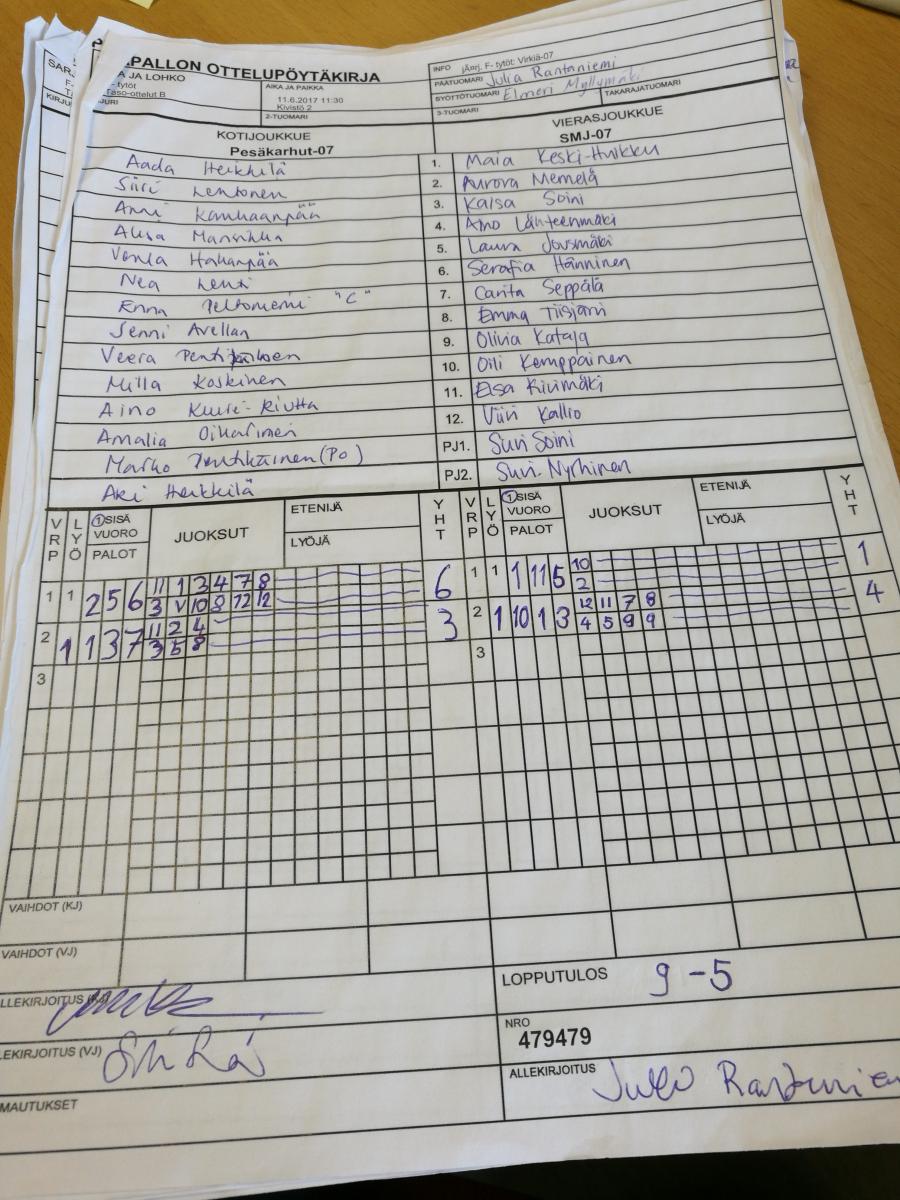 PALLON OTTELUPÖYTÄKIRJA
A JA LOHKO
F- tytöt
Taso-ottelut B
JURI
AIKA JA PAIKKA
11.6.2017 11:30
Kivistö 2
2-TUOMARI
INFO jänj. F- tytöt: Virkiä-07
PÄÄTUOMARI Julia Rantaniemi
SYÖTTÖTUOMARI Elmeri Myllymäki TAKARAJATUOMARI
3-TUOMARI
KOTIJOUKKUE
Pesäkarhut-07
VIERASJOUKKUE
SMJ-07
Aada Heikkilä 1. Maia Keski-Hnikku
Siiri Lehtonen 2. Aurora Memelä
Anni Kanhaanpää 3. Kaisa Soini
Alisa Mansikka 4. Aino Länteenmäki
Venla Hakanpää 5. Laura Jousmäki
Nea Lehti 6. Serafia Hänninen
Enna Peltoniemi "C" 7. Carita Seppälä
Senni Avellan 8. Emma Tiisjärvi
Veera 9. Olivia Kataja
Milla Koskinen 10. Oili Kemppainen
Aino Kuusi-Kiutta 11. Elsa Kivimäki
Amalia Oikarinen 12. Viivi Kallio
Marko Pentikäinen (PO) PJ1. Suvi Soini
Aki Heikkilä PJ2. Suvi Nyrhinen
VRP LYÖ 1 SISÄ VUORO PALOT JUOKSUT ETENIJÄ LYÖJÄ YHT VRP LYÖ 1 SISÄ VUORO PALOT JUOKSUT ETENIJÄ LYÖJÄ YHT
1 1 2 5 6 11 1 3 4 7 8 6 1 1 1 11 5 10 1
3 V 10 8 12 12 2
2 1 1 3 7 11 2 4 3 2 1 10 1 3 12 11 7 8 4
3 5 8 4 5 9 9
3 3
VAIHDOT (KJ)
VAIHDOT (VJ)
LLEKIRJOITUS (KJ)
LOPPUTULOS 9-5
EKIRJOITUS (VJ)
NRO
479479
MAUTUKSET
ALLEKIRJOITUS